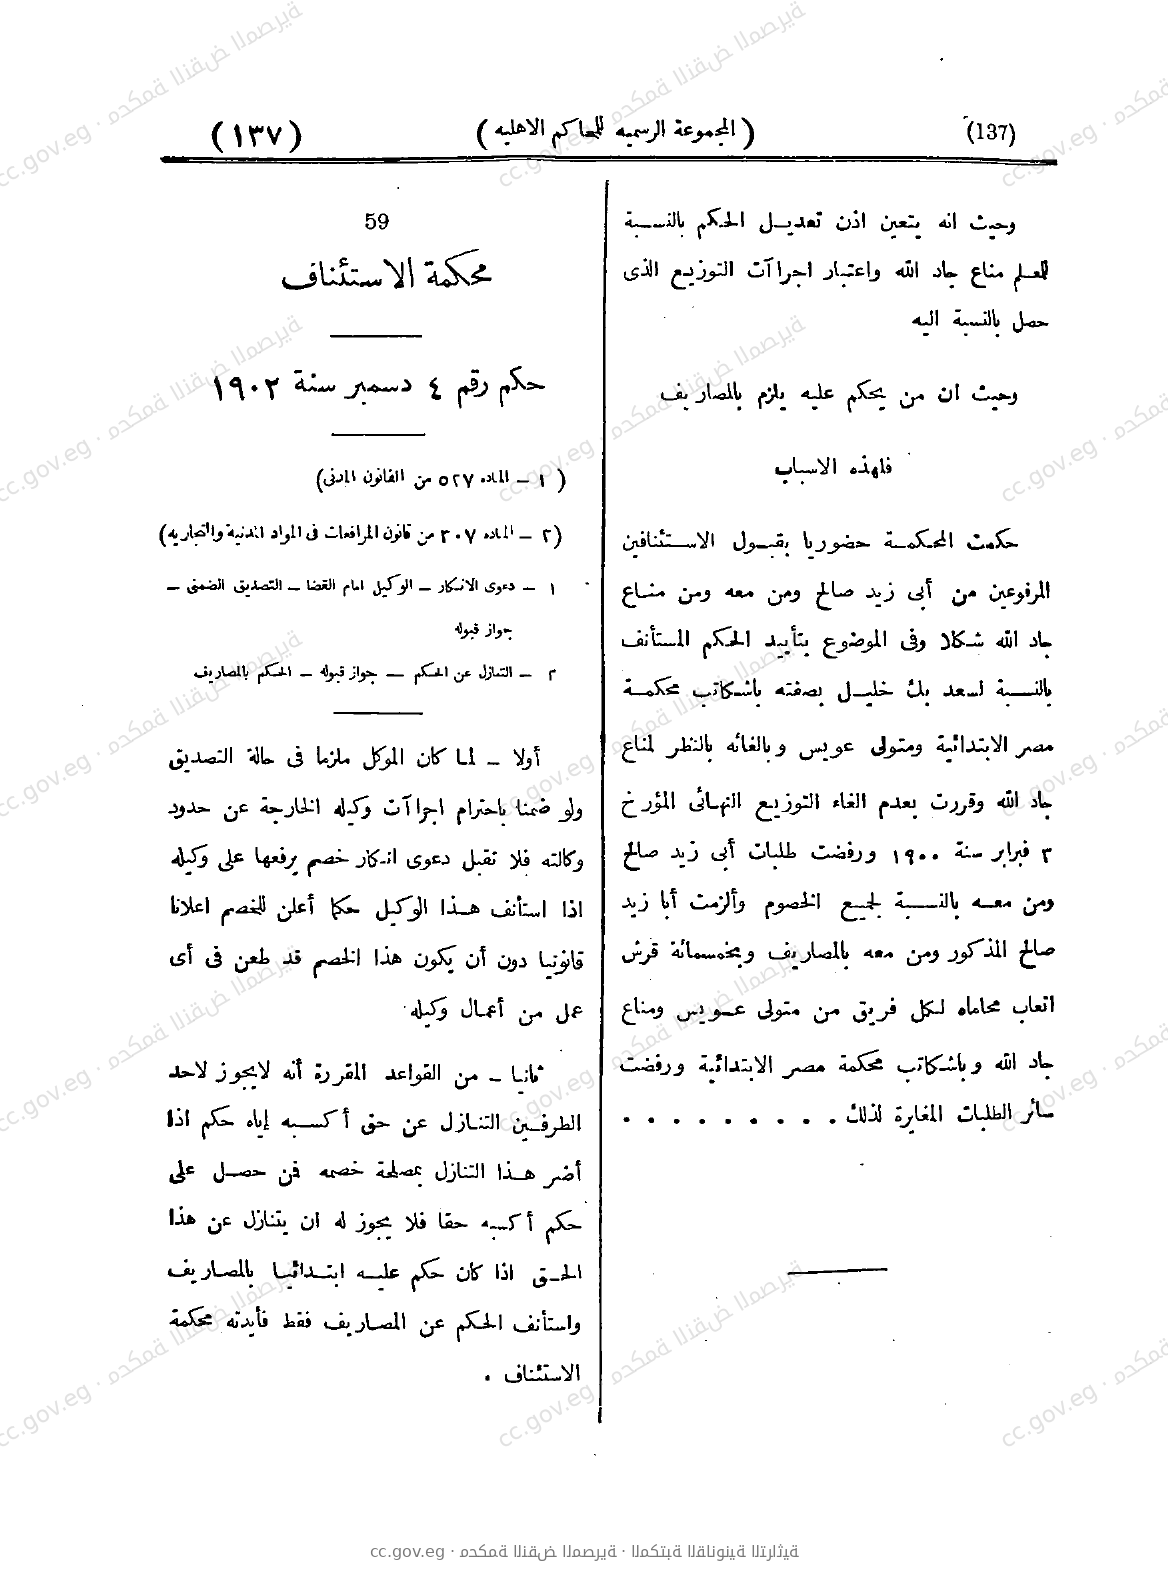 (137)
(المجموعة الرسميه للمحاكم الاهليه)
(١٣٧)
وحيث انه يتعين اذن تعديل الحكم بالنسبة
للعلم مناع جاد الله واعتبار اجراآت التوزيع الذى
حصل بالنسبة اليه
وحيث ان من يحكم عليه يلزم بالمصاريف
فلهذه الاسباب
حكمت المحكمة حضوريا بقبول الاستئنافين
المرفوعين من أبى زيد صالح ومن معه ومن مناع
جاد الله شكلا وفى الموضوع بتأييد الحكم المستأنف
بالنسبة لسعد بك خليل بصفته باشكاتب محكمة
مصر الابتدائية ومتولى عويس وبالغائه بالنظر لمناع
جاد الله وقررت بعدم الغاء التوزيع النهائى المؤرخ
٣ فبراير سنة ١٩٠٠ ورفضت طلبات أبى زيد صالح
ومن معه بالنسبة لجميع الخصوم وألزمت أبا زيد
صالح المذكور ومن معه بالمصاريف وبخمسمائة قرش
اتعاب محاماه لكل فريق من متولى عويس ومناع
جاد الله وباشكاتب محكمة مصر الابتدائية ورفضت
سائر الطلبات المغايرة لذلك . . . . . . . . .
59
محكمة الاستئناف
حكم رقم ٤ دسمبر سنة ١٩٠٢
( ١ – الماده ٥٢٧ من القانون المدنى)
(٢ – الماده ٣٠٧ من قانون المرافعات فى المواد المدنية والتجاريه)
١ – دعوى الانكار – الوكيل امام القضا – التصديق الضمنى –
جواز قبوله
٢ – التنازل عن الحكم – جواز قبوله – الحكم بالمصاريف
أولا – لما كان الموكل ملزما فى حالة التصديق
ولو ضمنا باحترام اجراآت وكيله الخارجة عن حدود
وكالته فلا تقبل دعوى انكار خصم يرفعها على وكيله
اذا استأنف هذا الوكيل حكما أعلن للخصم اعلانا
قانونيا دون أن يكون هذا الخصم قد طعن فى أى
عمل من أعمال وكيله
ثانيا – من القواعد المقررة أنه لايجوز لاحد
الطرفين التنازل عن حق أكسبه إياه حكم اذا
أضر هذا التنازل بمصلحة خصمه فمن حصل على
حكم أكسبه حقا فلا يجوز له ان يتنازل عن هذا
الحق اذا كان حكم عليه ابتدائيا بالمصاريف
واستأنف الحكم عن المصاريف فقط فأيدته محكمة
الاستئناف .
cc.gov.eg · محكمة النقض المصرية · المكتبة القانونية التراثية